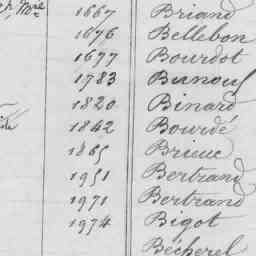 1667 Briand
1676 Bellebon
1677 Bourdot
1783
1820 Binard
1842 Bourdé
1865 Brieuc
1951 Bertrand
1971 Bertrand
1974 Bigot
Bécherel